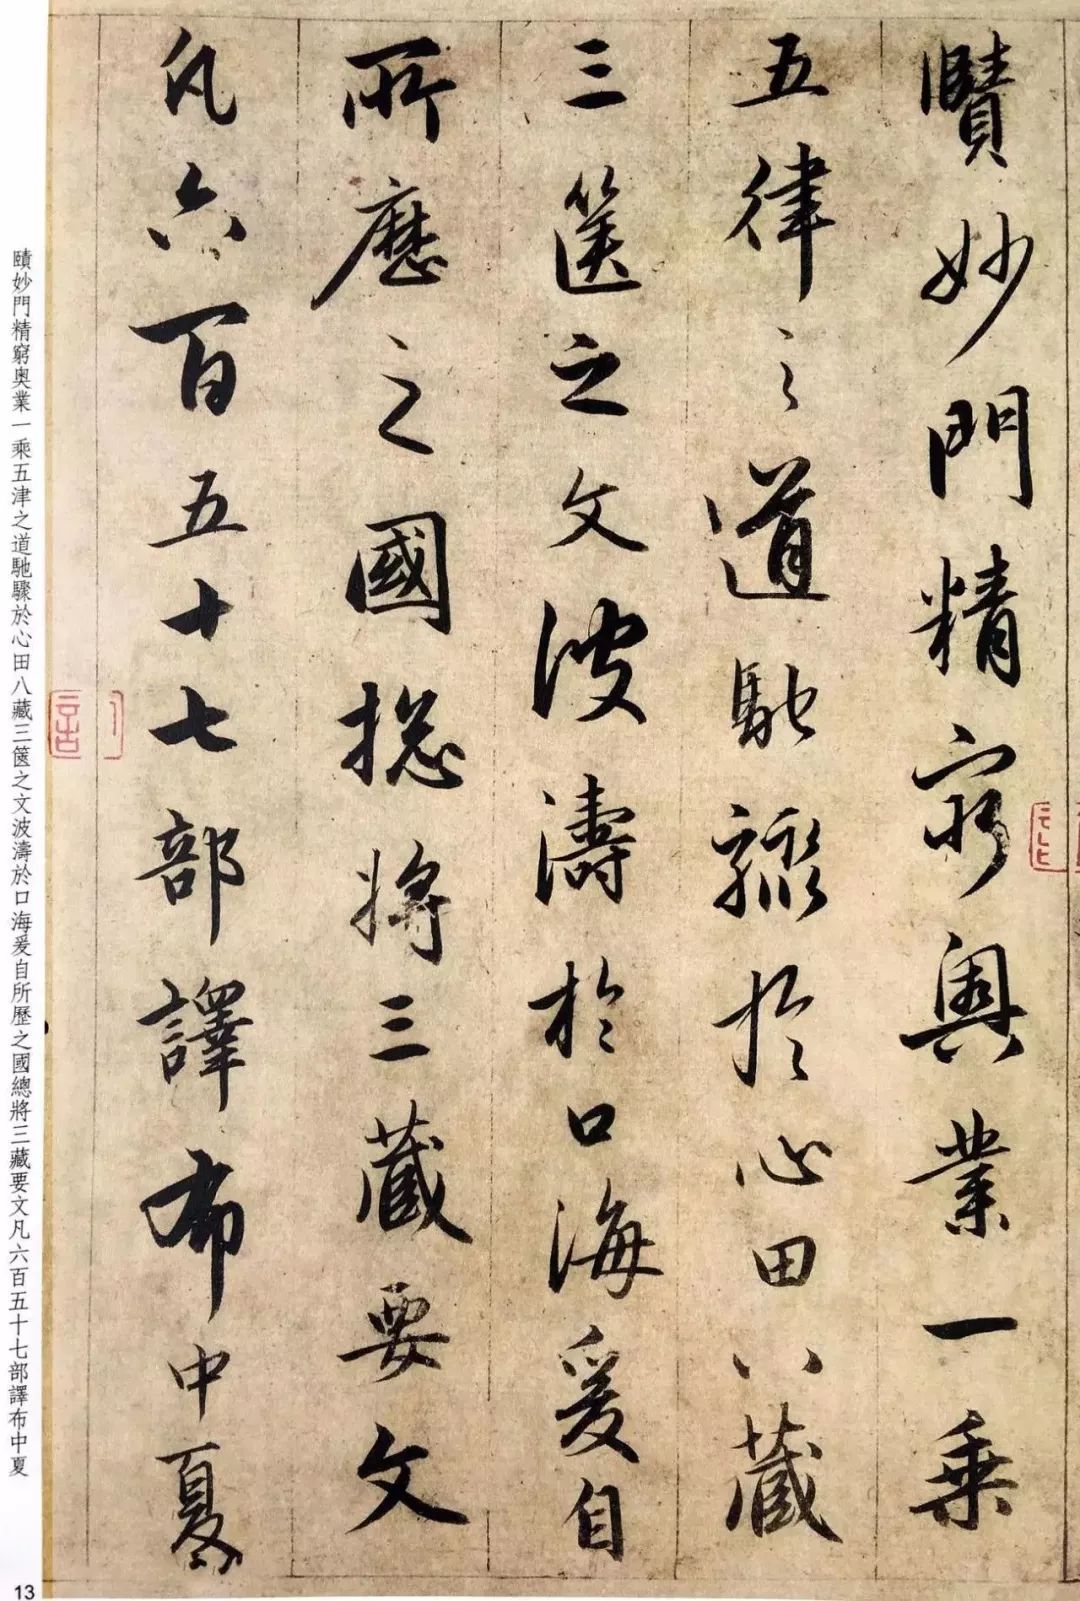 賾妙門精窮奧業一乘
五律之道馳驟於心田八藏
三篋之文波濤於口海爰自
所歷之國摠將三藏要文
凡六百五十七部譯布中夏
賾妙門精窮奧業一乘五津之道馳驟於心田八藏三篋之文波濤於口海爰自所歷之國總將三藏要文凡六百五十七部譯布中夏
13